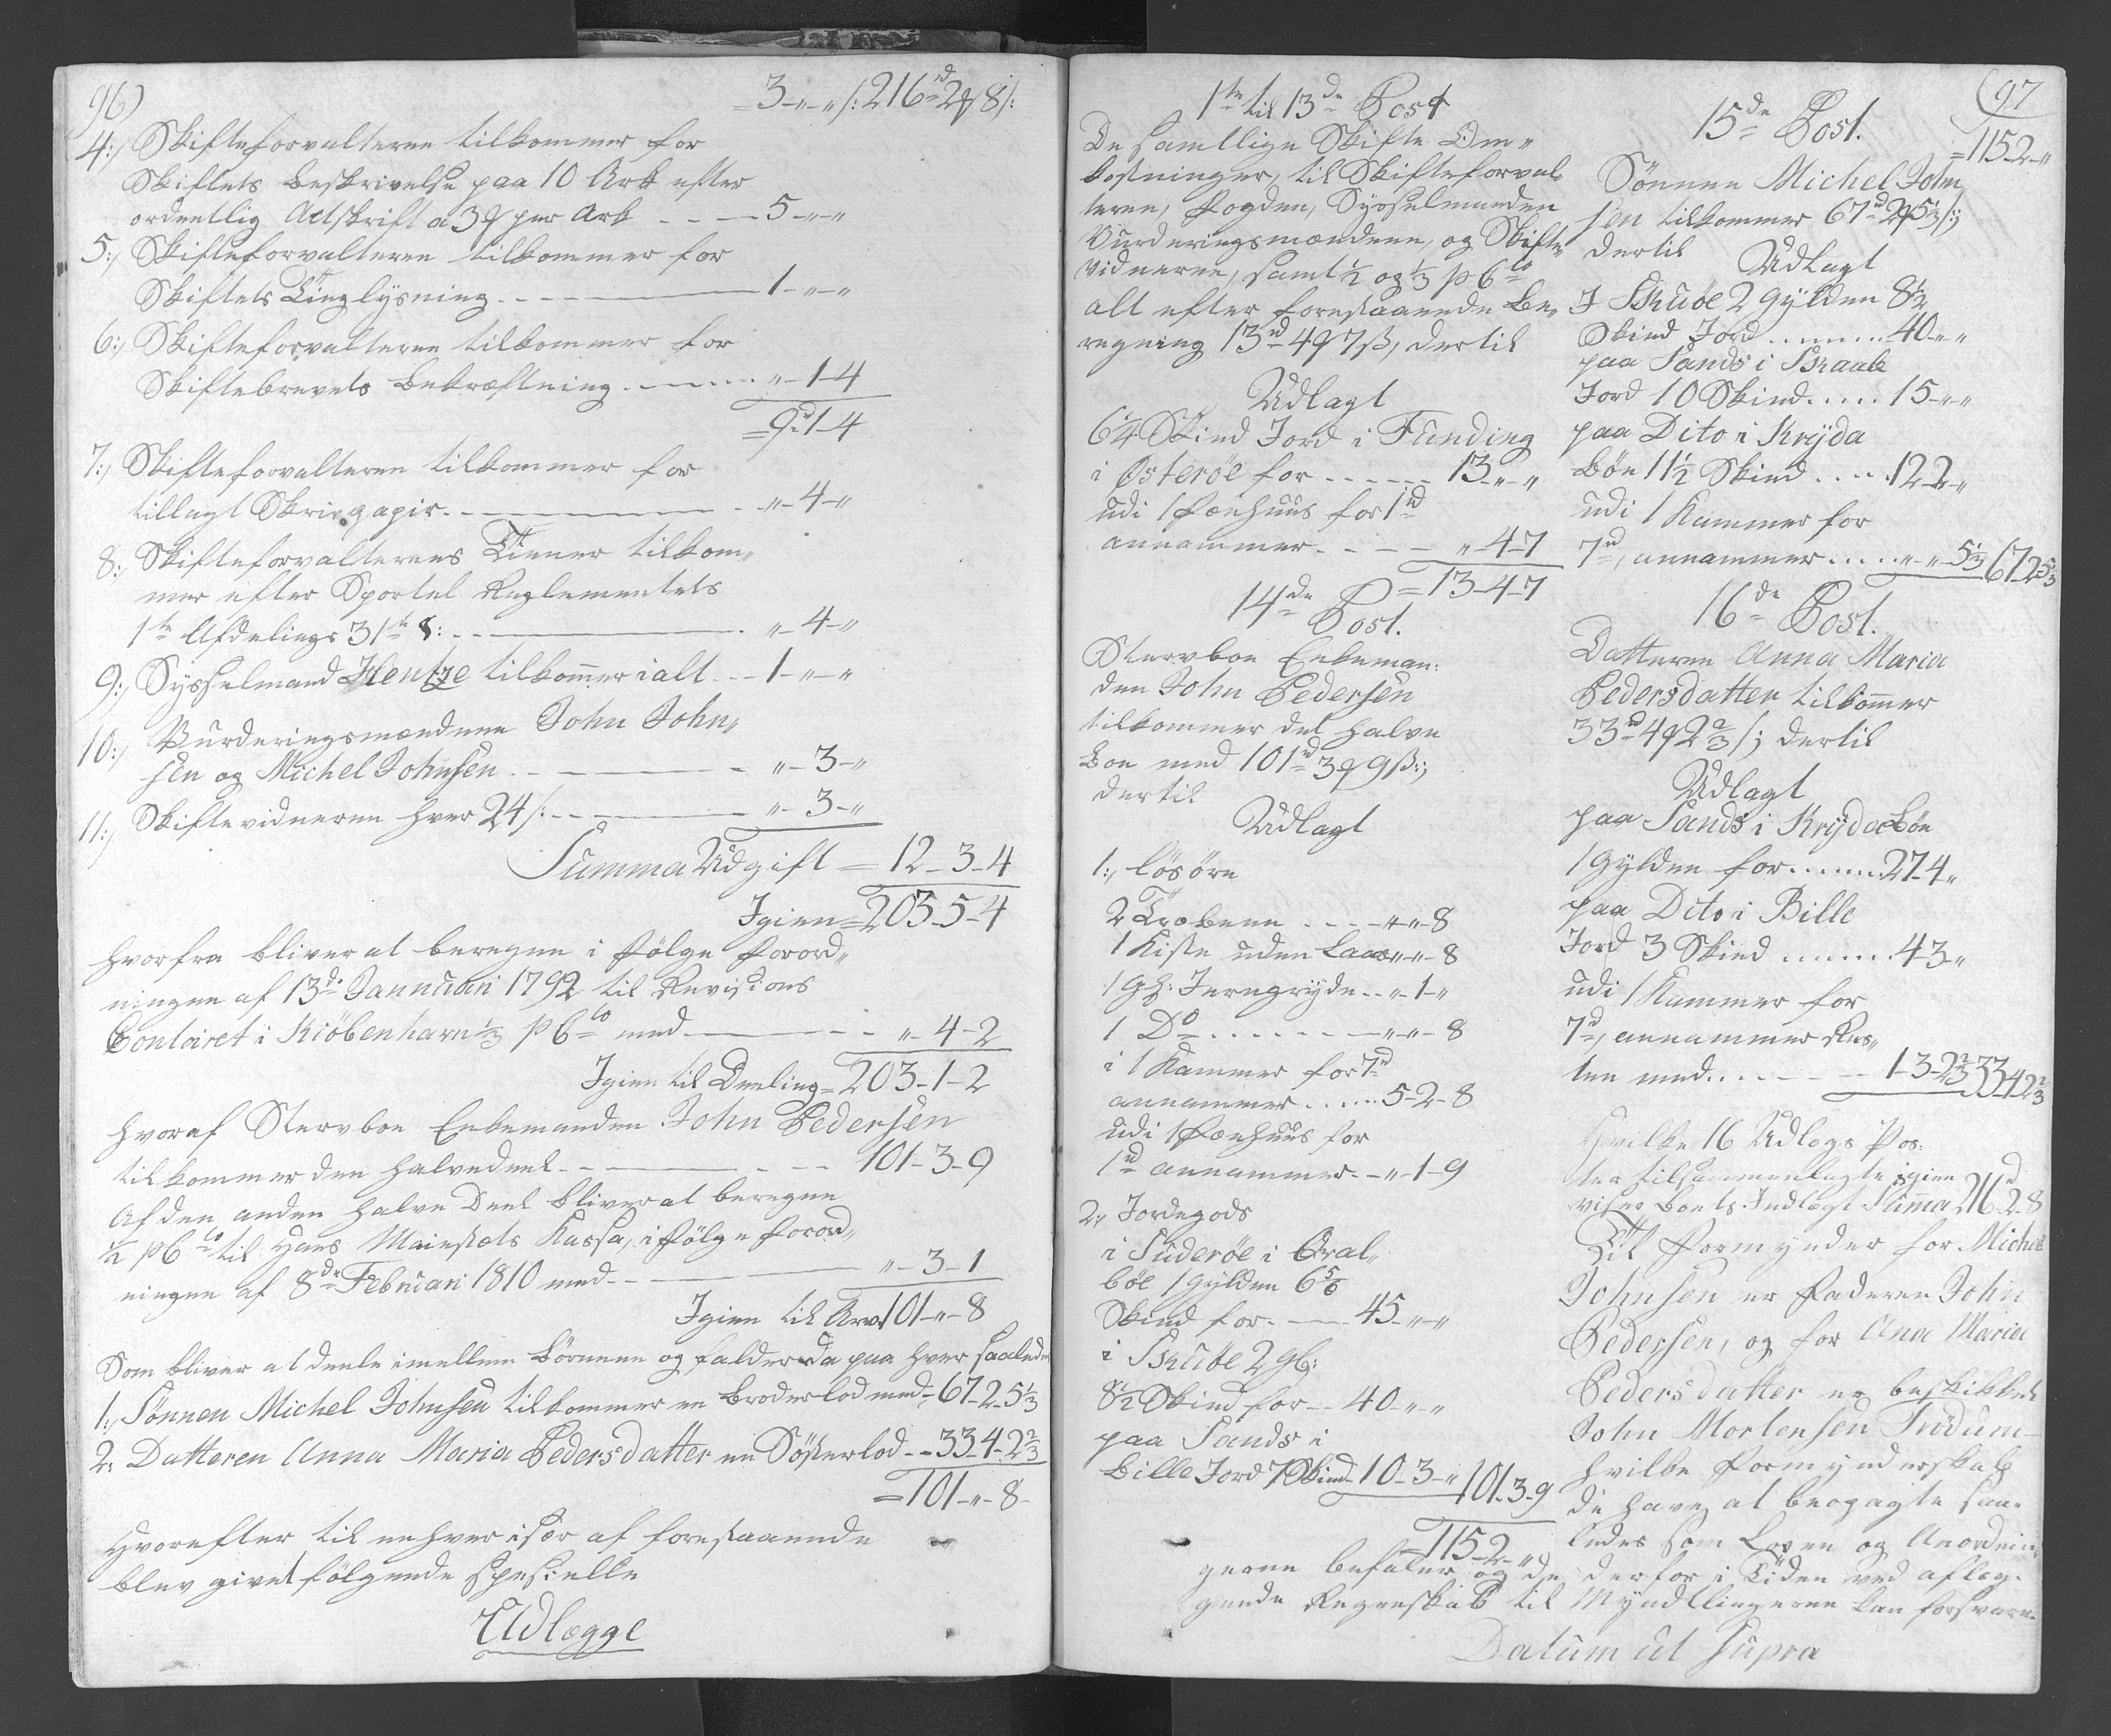 96)
= 3-"-" /: 216rd 2ϟ 8/:
4:, Skifteforvalteren tilkommer for
Skiftets Beskrivelse paa 10 Ark efter
ordentlig Actskrift a 3ϟ per Ark - - - 5-"-"
5:, Skifteforvalteren tilkommer for
Skiftets Tinglysning - - - 1-"-"
6:, Skifteforvalteren tilkommer for
Skiftebrevets Bekræftning - - - "-1-4
= 9rd 1-4
7:, Skifteforvalteren tilkommer for
tillagt Skrivpapir - - - "-4-"
8:, Skifteforvalterens Tiener tilkom„
mer efter Sportel Reglementets
1te Afdelings 31te §: - - - "-4-"
9:, Sysselmand Hentze tilkommer ialt - - 1-"-"
10:, Vurderingsmændene John John„
sen og Michel Johnsen - - - "-3-"
11:, Skiftevidnerne hver 24/: - - - "-3-"
Summa Udgift = 12-3-4
Igien = 203-5-4
hvorfra bliver at beregne i følge Forord„
ningen af 13de Januari 1792 til Revisions
Contoiret i Kiøbenhavn 1/3 p Cto med - - - "-4-2
Igien til Deeling = 203-1-2
hvoraf Stervboe Enkemanden John Pedersen
tilkommer den halvedeel - - - 101-3-9
Af den anden halve Deel bliver at beregne
1/2 p Cto til Hans Maiestæts Kassa, i følge Forord„
ningen af 8de Februari 1810 med - - - "-3-1
Igien til Arv 101-"-8
Som bliver at deele imellem Børnene og falder da paa hver saaledes
1:, Sønnen Michel Johnsen tilkommer en Broderlod med = 67-2-5 1/3
2: Datteren Anna Maria Pedersdatter en Søsterlod - - 33-4-2 2/3
= 101-"-8-
Hvorefter til enhver især af forestaaende
blev givet følgende specielle
Udlægge
1te til 13de Post
De samtlige Skifte Om„
kostninger, til Skifteforval„
teren, Fogden, Sysselmanden
Vurderingsmændene, og Skifte„
vidnerne, samt 1/2 og 1/3 p Cto
alt efter forestaaende Be„
regning 13rd 4ϟ 7ß, dertil
Udlagt
6 1/4 Skind Jord i Funding
i Østerøe for - - - 13-"-"
udi 1 Fæehuus for 1rd
annammer - - - "-4-7
= 13-4-7
14de Post.
Stervboe Enkeman:
den John Pedersen
tilkommer det halve
Boe med 101rd 3ϟ 9ß:;
dertil
Udlagt
1:, Løsøre
2 Trobene - - - "-"-8
1 Kiste uden Laas "-"-8
1 gl: Jerngryde - - "-1-"
1 Do - - - "-"-8
i 1 Kammer for 7rd
annammer - - - 5-2-8
udi 1 Fæehuus for
1rd annammer - - "-1-9
2:, Jordegods
i Suderøe i Qval„
bøe 1 Gylden 6 5/6
Skind for - - - 45-"-"
i Skuøe 2 gl:
8 1/2 Skind for - - 40-"-"
paa Sands i
Bille Jord 7 Skind 10-3-" 101-3-9
= 115-2-"
(97
15de Post.
= 115-2-"
Sønnen Michel John
sen tilkommer 67rd 2ϟ 5 1/3 /:;
dertil
Udlagt
I Skuøe 2 Gylden 8 1/2
Skind Jord - - - 40-"-"
paa Sands i Skaale
Jord 10 Skind - - - 15-"-"
paa Dito i Krijda
bøe 11 1/2 Skind - - - 12-2-"
udi 1 Kammer for
7rd, annammer - - - "-"-5 1/3 67-2-5 1/3
16de Post.
Datteren Anna Maria
Pedersdatter tilkommer
33rd 4ϟ 2 2/3 /:; dertil
Udlagt
paa Sands i Krijdabøe
1 Gylden for - - - 27-4-"
paa Dito i Bille
Jord 3 Skind - - - 4-3-"
udi 1 Kammer for
7rd, annammer Res„
ten med - - - 1-3-2 2/3 33-4-2 2/3
Hvilke 16 Udlægs Pos:
ter tilsammenlagte igien
viser Boets Indtægt Summa 216rd 2-8
Til Formynder for Michel
Johnsen er Faderen John
Pedersen, og for Ana Maria
Pedersdatter er beskikket
John Mortensen Trödum
hvilke Formynderskab
de have at beopagte saa„
ledes som Loven og Anordnin
gerne befaler og de derfor i Tiden ved aflæg„
gende Regnskab til Myndlingerne kan forsvare.
Datum ut Supra